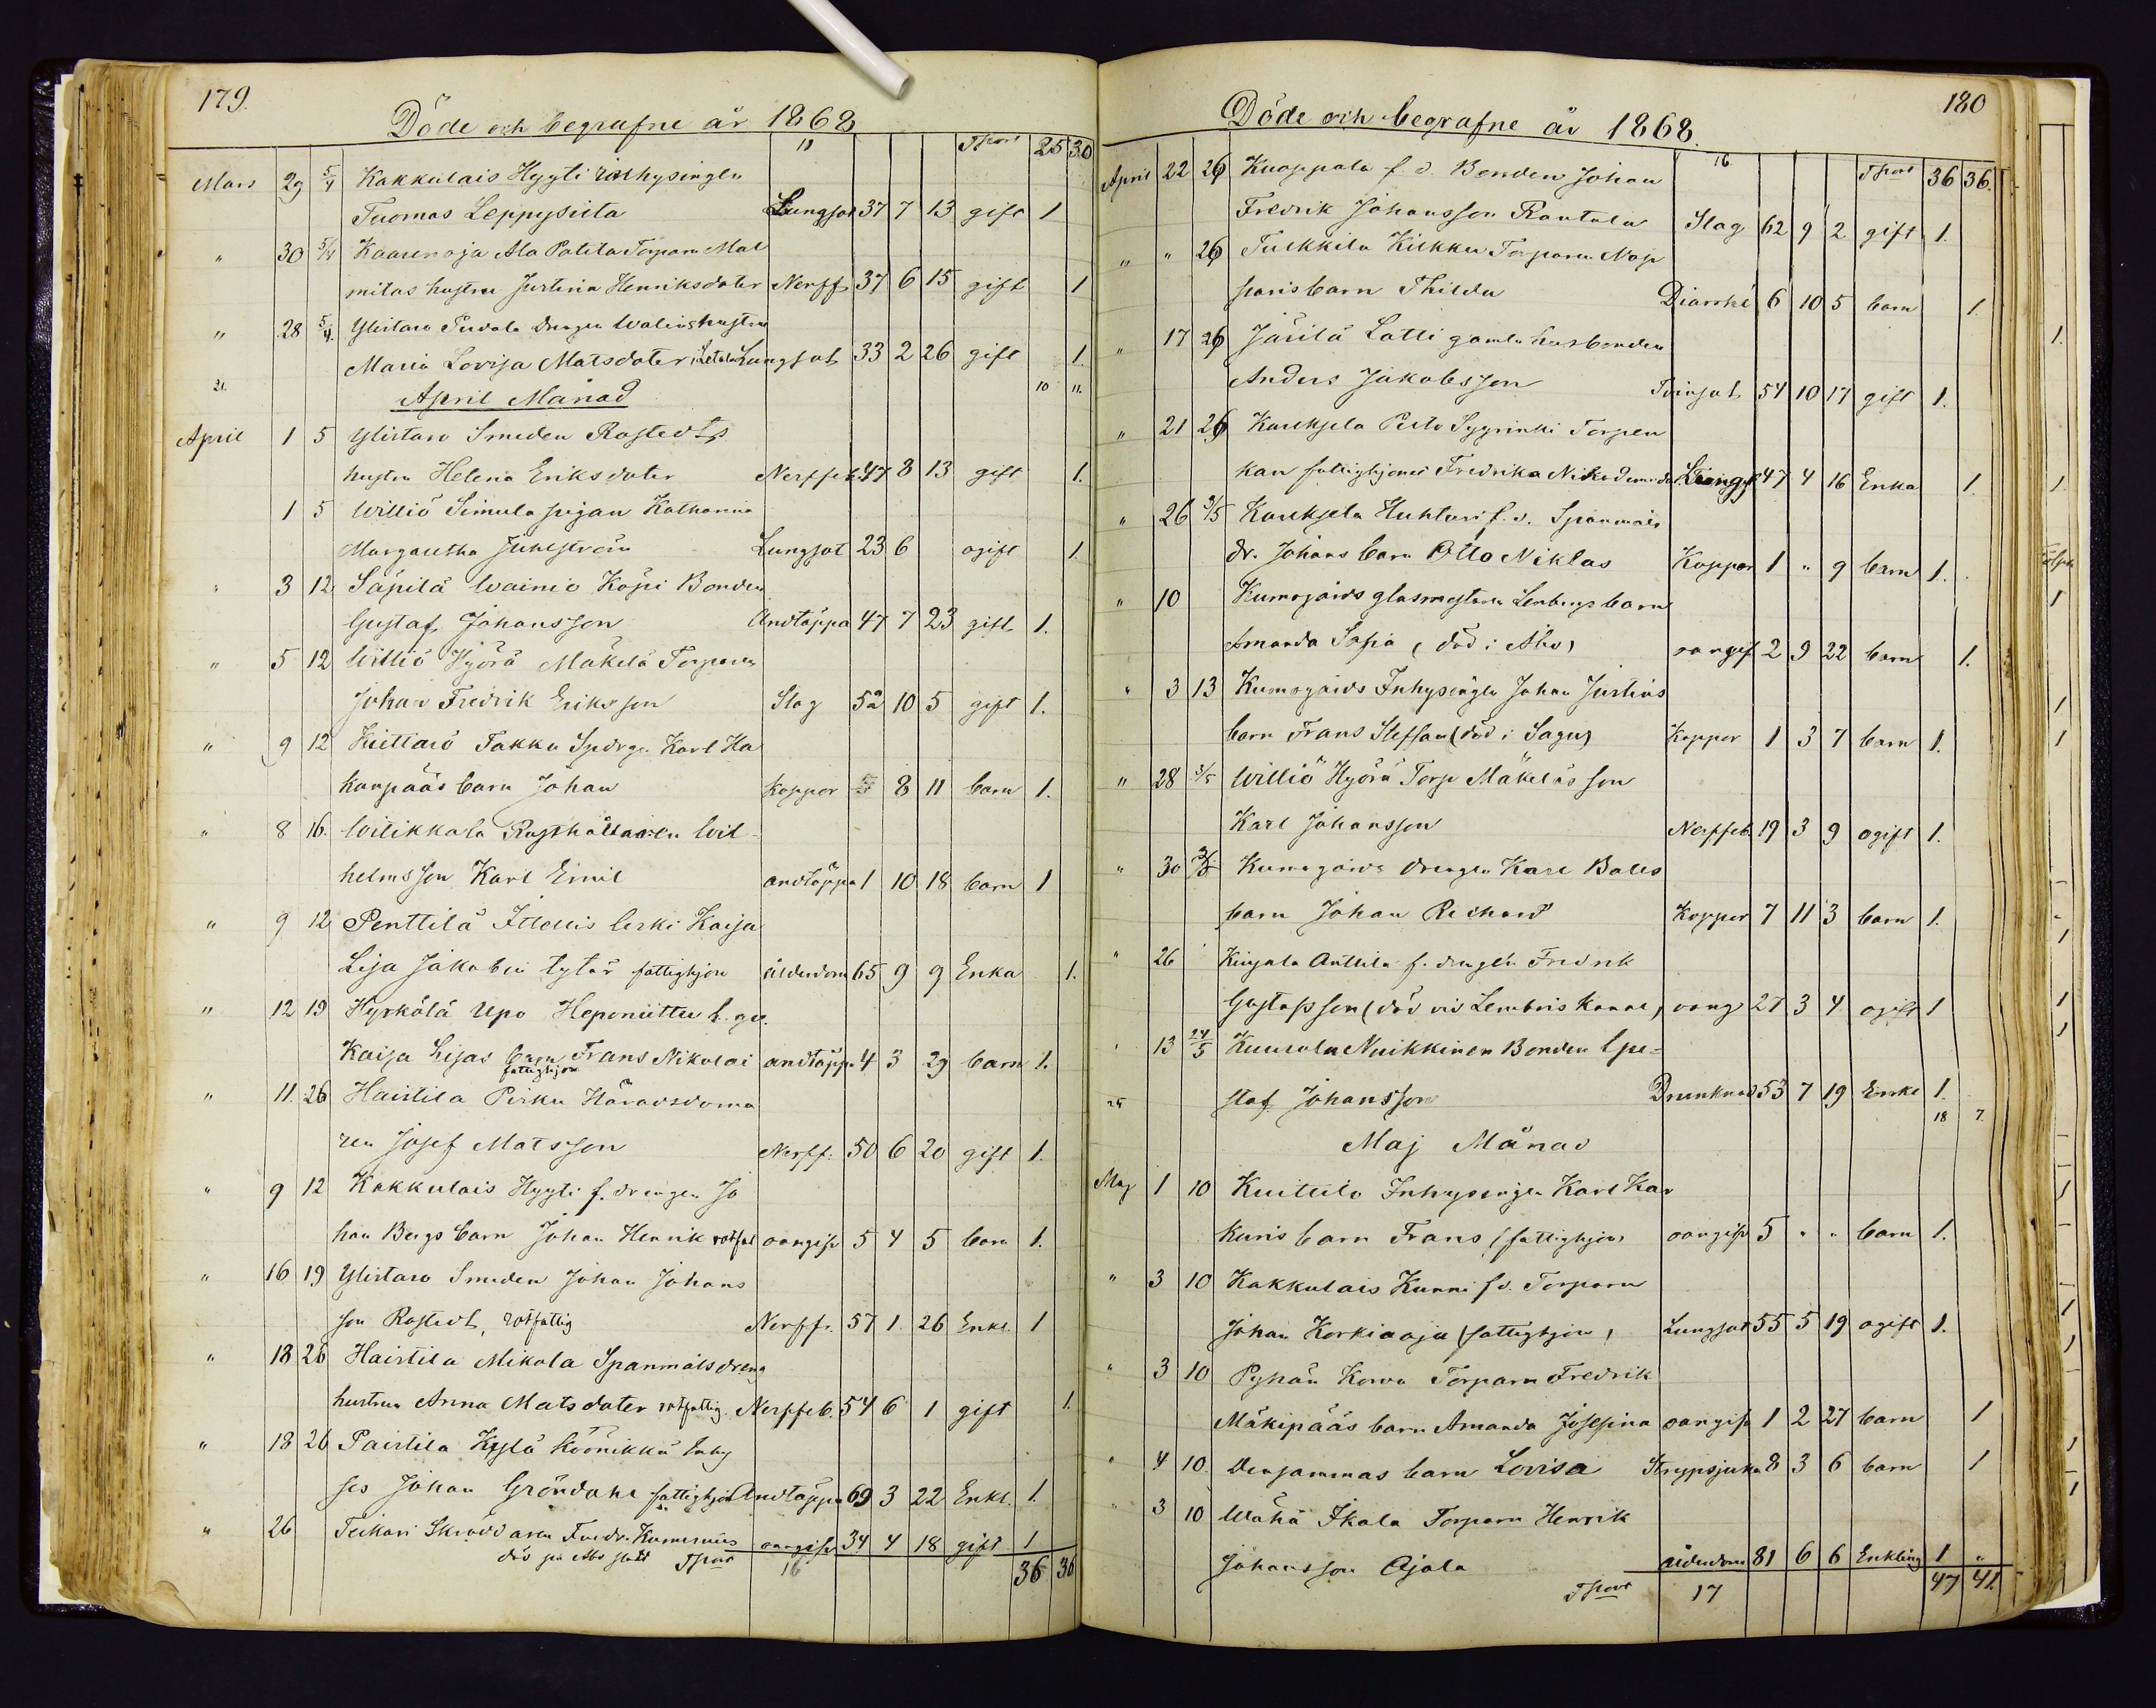 179.
Döde och begrafne år 1868
18 Tsport 25 30
Mars 29 5/4 Kakkulais Hyyti inhysingen
Tuomas Leppysiita Lungsot 37 7 13 gift 1
" 30 5/4 Kaarenoja Ala Patita Torparn Mal
mitas hustru Justina Henriksdoter Nerff. 37 6 15 gift 1
" 28 5/4. Ylistaro Perdala drengen Walins hustru
Maria Lovisa Matsdoter Lungsot 33 2 26 gift 1.
21. April Månad 10 11.
April 1 5 Ylistaro Smeden Rostedts
hustru Helena Eriksdoter Nerffeb. 47 8 13 gift 1.
1 5 Williö Simula pigan Katharina
Margaretha Juhlström Lungsot 23 6 ogift 1.
" 3 12 Säpilä Wainio Köpi Bonden
Gustaf Johansson Andtäppa 47 7 23 gift 1.
" 5 12 Williö Hyörä Mäkelä Torparen
Johan Fredrik Eriksson Slag 52 10 5 gift 1.
" 9 12 Kiettarö Takku Spdrgn Karl Ha
kanpääs barn Johan Koppor 5 8 11 barn 1.
" 8 16. Wiikkala Rusthållaren Wil-
helms son Karl Emil andtäppa 1 10 18 barn 1
" 9 12 Penttilä Ittellis leski Kaisa
Lisa Jakobin tytär fattighjon ålderdom 65 9 9 Enka 1.
" 12 19 Hyrkölä Upo Heponiittu h. qv.
Kaisa Lisas barn Frans Nikolai andtäpp. 4 3 29 barn 1.
fattighjon
" 11. 26 Haistila Pirku Häradsdoma
ren Josef Matsson Nerff. 50 6 20 gift 1.
" 9 12 Kakkulais Hyyti f. drengen Jo
han Bergs barn Johan Henrik rotfat oangifv 5 4 5 barn 1.
" 16 19 Ylistaro Smeden Johan Johans
son Rostedt, rotfattig Nerff. 57 1. 26 Enkl. 1
" 18 26 Haistila Mikola Spanmålsdreng
hustrun Anna Matsdoter rotfattig. Nerffeb. 54 6 1 gift 1.
" 18 26 Paistila Kylä Köönikkä Inhy
ses Johan Gröndahl fattighjon Andtäppa 69 3 22 Enkl. 1.
" 26 Teikari Skräddaren Fredr. Kumenius oangifv 34 4 18 gift 1
död på Åbo slott Tspor 16 36 36
180
Döde och begrafne år 1868.
16 Tsport 36 36.
April 22 26 Knoppala f. d. Bonden Johan
Fredrik Johansson Rantala Slag 62 9 2 gift 1.
" " 26 Tulkkila Kilkku Torparen Nop
paris barn Thilda Diarrhé 6 10 5 barn 1.
" 17 26 Järilä Latti gamla husbonden
Anders Jakobsson Tvinsot 54 10 17 gift 1.
" 21 26 Kareksela Perto Sygrinki Torpen
kan fattighjonet Fredrika Nikodemidr Lungs. 47 4 16 Enka 1.
" 26 3/5 Kareksela Huhtari f. d. Spanmåls
dr. Johans barn Otto Niklas Koppor 1 " 9 barn 1.
" 10 Kumogårds glasmestaren Lenbergs barn
Amanda Sofia (död i Åbo) oangif. 2 9 22 barn 1.
" 3 13 Kumogårds Inhysingen Johan Justins
barn Frans Steffan (död i Sagu) Koppor 1 3 7 barn 1.
" 28 3/5 Williö Hyörä Torp Mäkeläs son
Karl Johansson Nerffeb. 19 3 9 ogift 1.
" 30 3/5 Kumogårds drengen Karl Bales
barn Johan Richard Koppor 7 11 3 barn 1.
" 26 Kinsala Anttila f. drengen Fredrik
Gustafsson (död vid Lembois kanal) oang 27 3 4 ogift 1
" 13 24/5 Kuurola Nuikkinen Bonden Gu-
25 staf Johansson Drunknad 53 7 19 Enkl 1.
18 7.
Maj Månad
Maj 1 10 Kuittilo Inhysingen Karl Kar
kuris barn Frans (fattighjon) oangifv 5 " " barn 1.
" 3 10 Kakkulais Kunni f.d. Torparn
Johan Korkiaoja (fattighjon) Lungsot 55 5 19 ogift 1.
" 3 10 Pyhän Korva Torparn Fredrik
Mäkipääs barn Amanda Josefina oangifv 1 2 27 barn 1
" 4 10. Densammas barn Lovisa Strypsjuka 8 3 6 barn 1
" 3 10 Wähä Ikala Torparn Henrik
Johansson Ajala ålderdom 81 6 6 Enkling 1 "
Tsport 17 47 41.